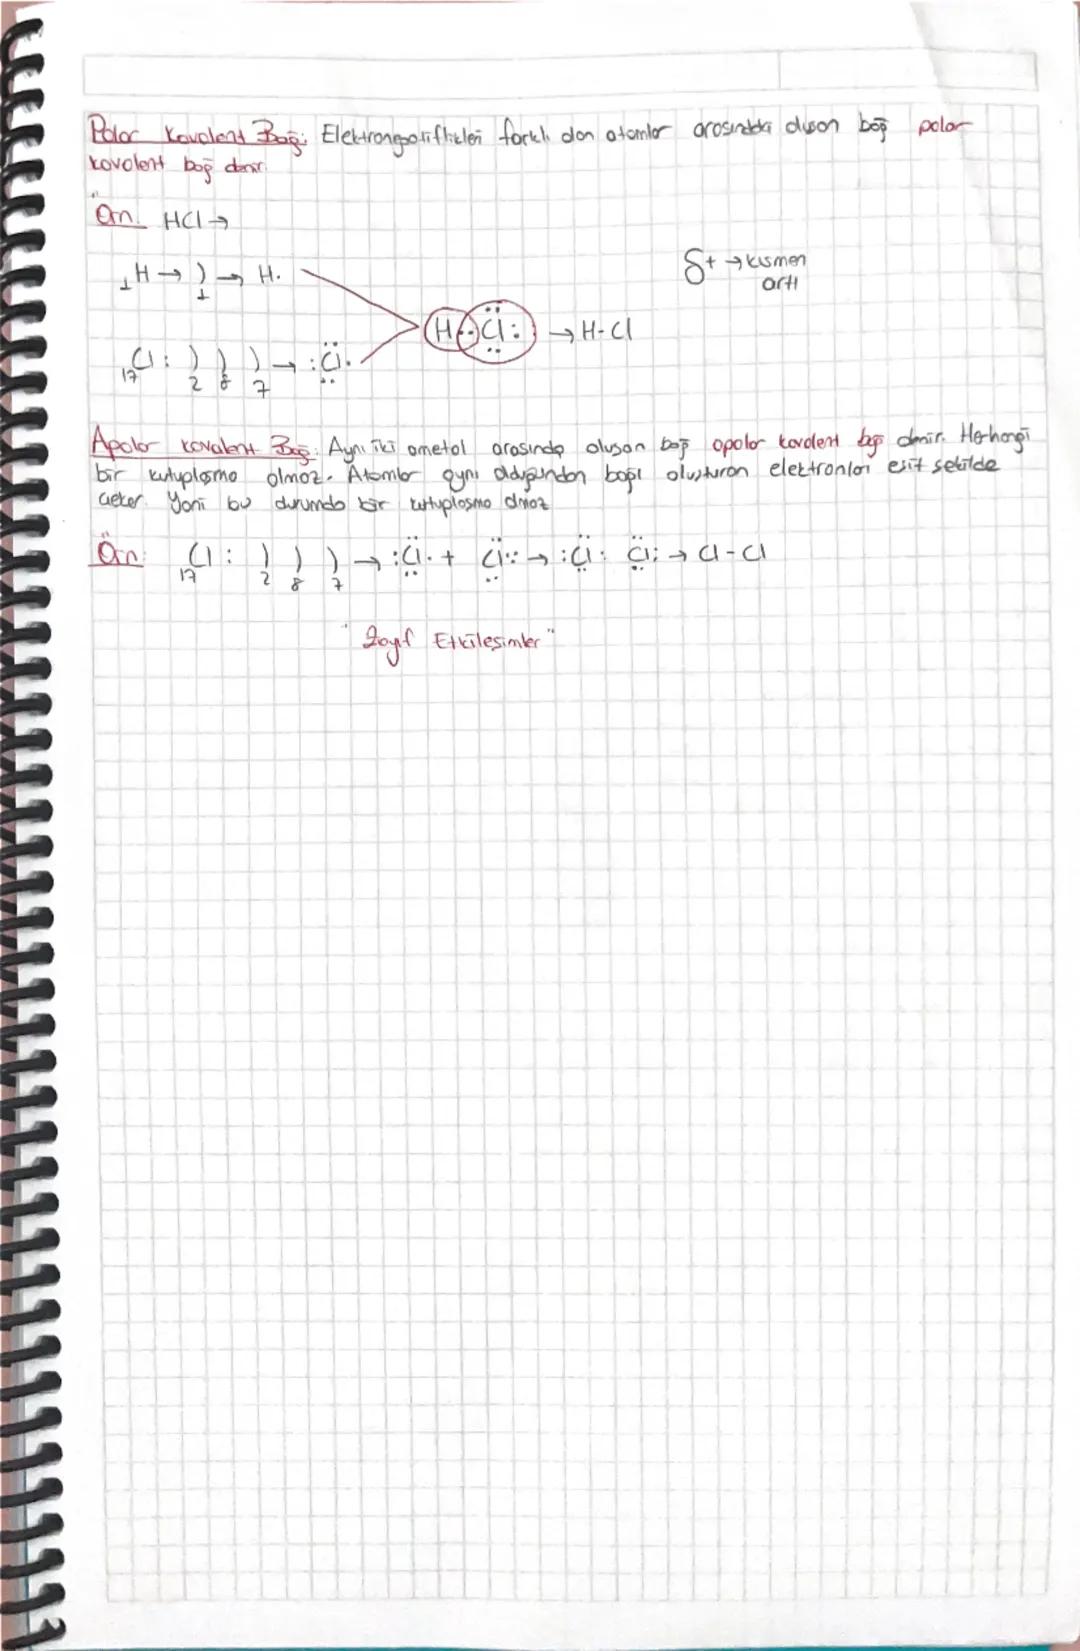 Polar Kovalent Bağ: Elektronegatiflikleri farklı olan atomlar arasındaki oluşan bağ polar
kovalent bağ denir.
Örn. HCl →
₁H → ) → H.
1
δ+ → kısmen
artı
H··Cl: → H-Cl
₁₇Cl: ) ) ) → :Cl.
2 8 7
Apolar kovalent Bağ: Aynı iki ametal arasında oluşan bağ apolar kovalent bağ denir. Herhangi
bir kutuplaşma olmaz. Atomlar aynı olduğundan bağı oluşturan elektronları eşit şekilde
çeker. Yani bu durumda bir kutuplaşma olmaz
Örn: ₁₇Cl: ) ) ) → :Cl. + Cl: → :Cl: Cl: → Cl-Cl
2 8 7
"Zayıf Etkileşimler"